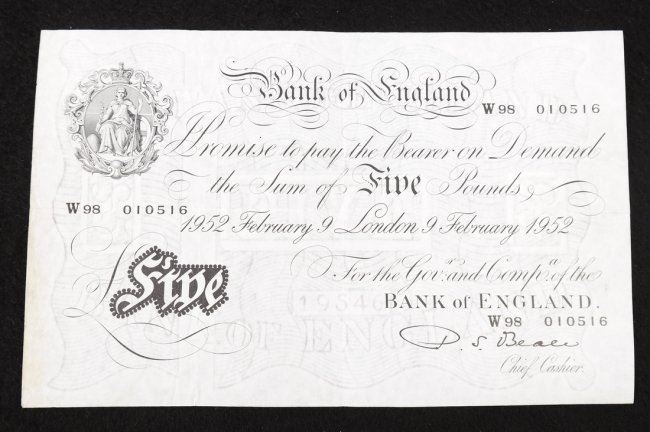 Bank of England
W98 010516
I Promise to pay the Bearer on Demand
the Sum of Five Pounds
W98 010516
1952 February 9 London 9 February 1952
Five
For the Govr. and Compa. of the
BANK of ENGLAND.
W98 010516
P. S. Beale
Chief Cashier.
OF ENGLA